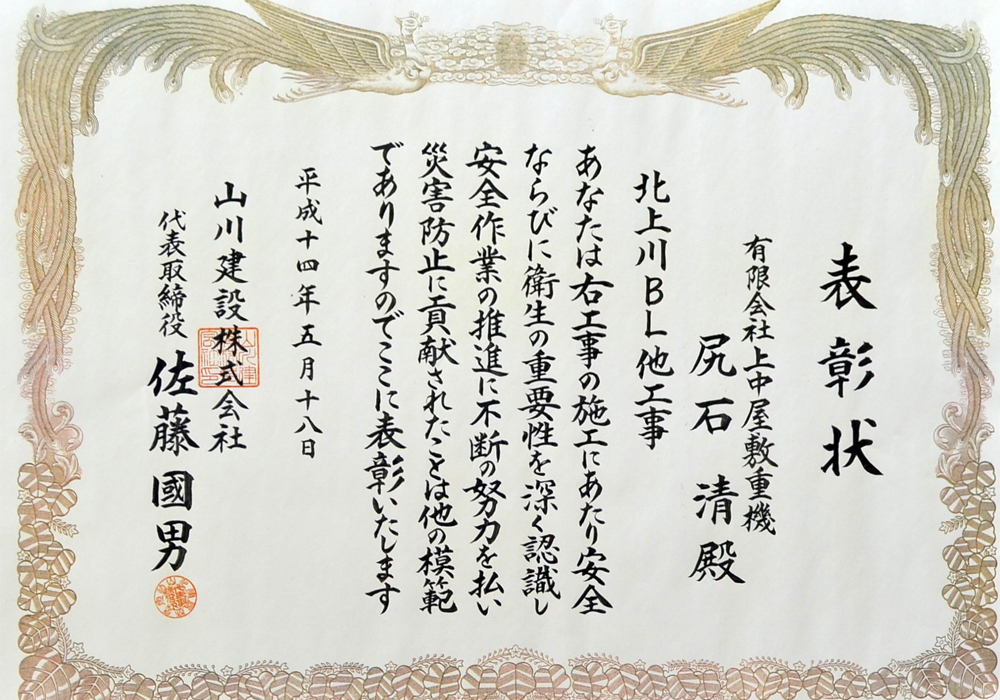 表彰状
有限会社上中屋敷重機
尻石清殿
北上川BL他工事
あなたは右工事の施工にあたり安全
ならびに衛生の重要性を深く認識し
安全作業の推進に不断の努力を払い
災害防止に貢献されたことは他の模範
でありますのでここに表彰いたします
平成十四年五月十八日
山川建設株式会社
代表取締役 佐藤國男